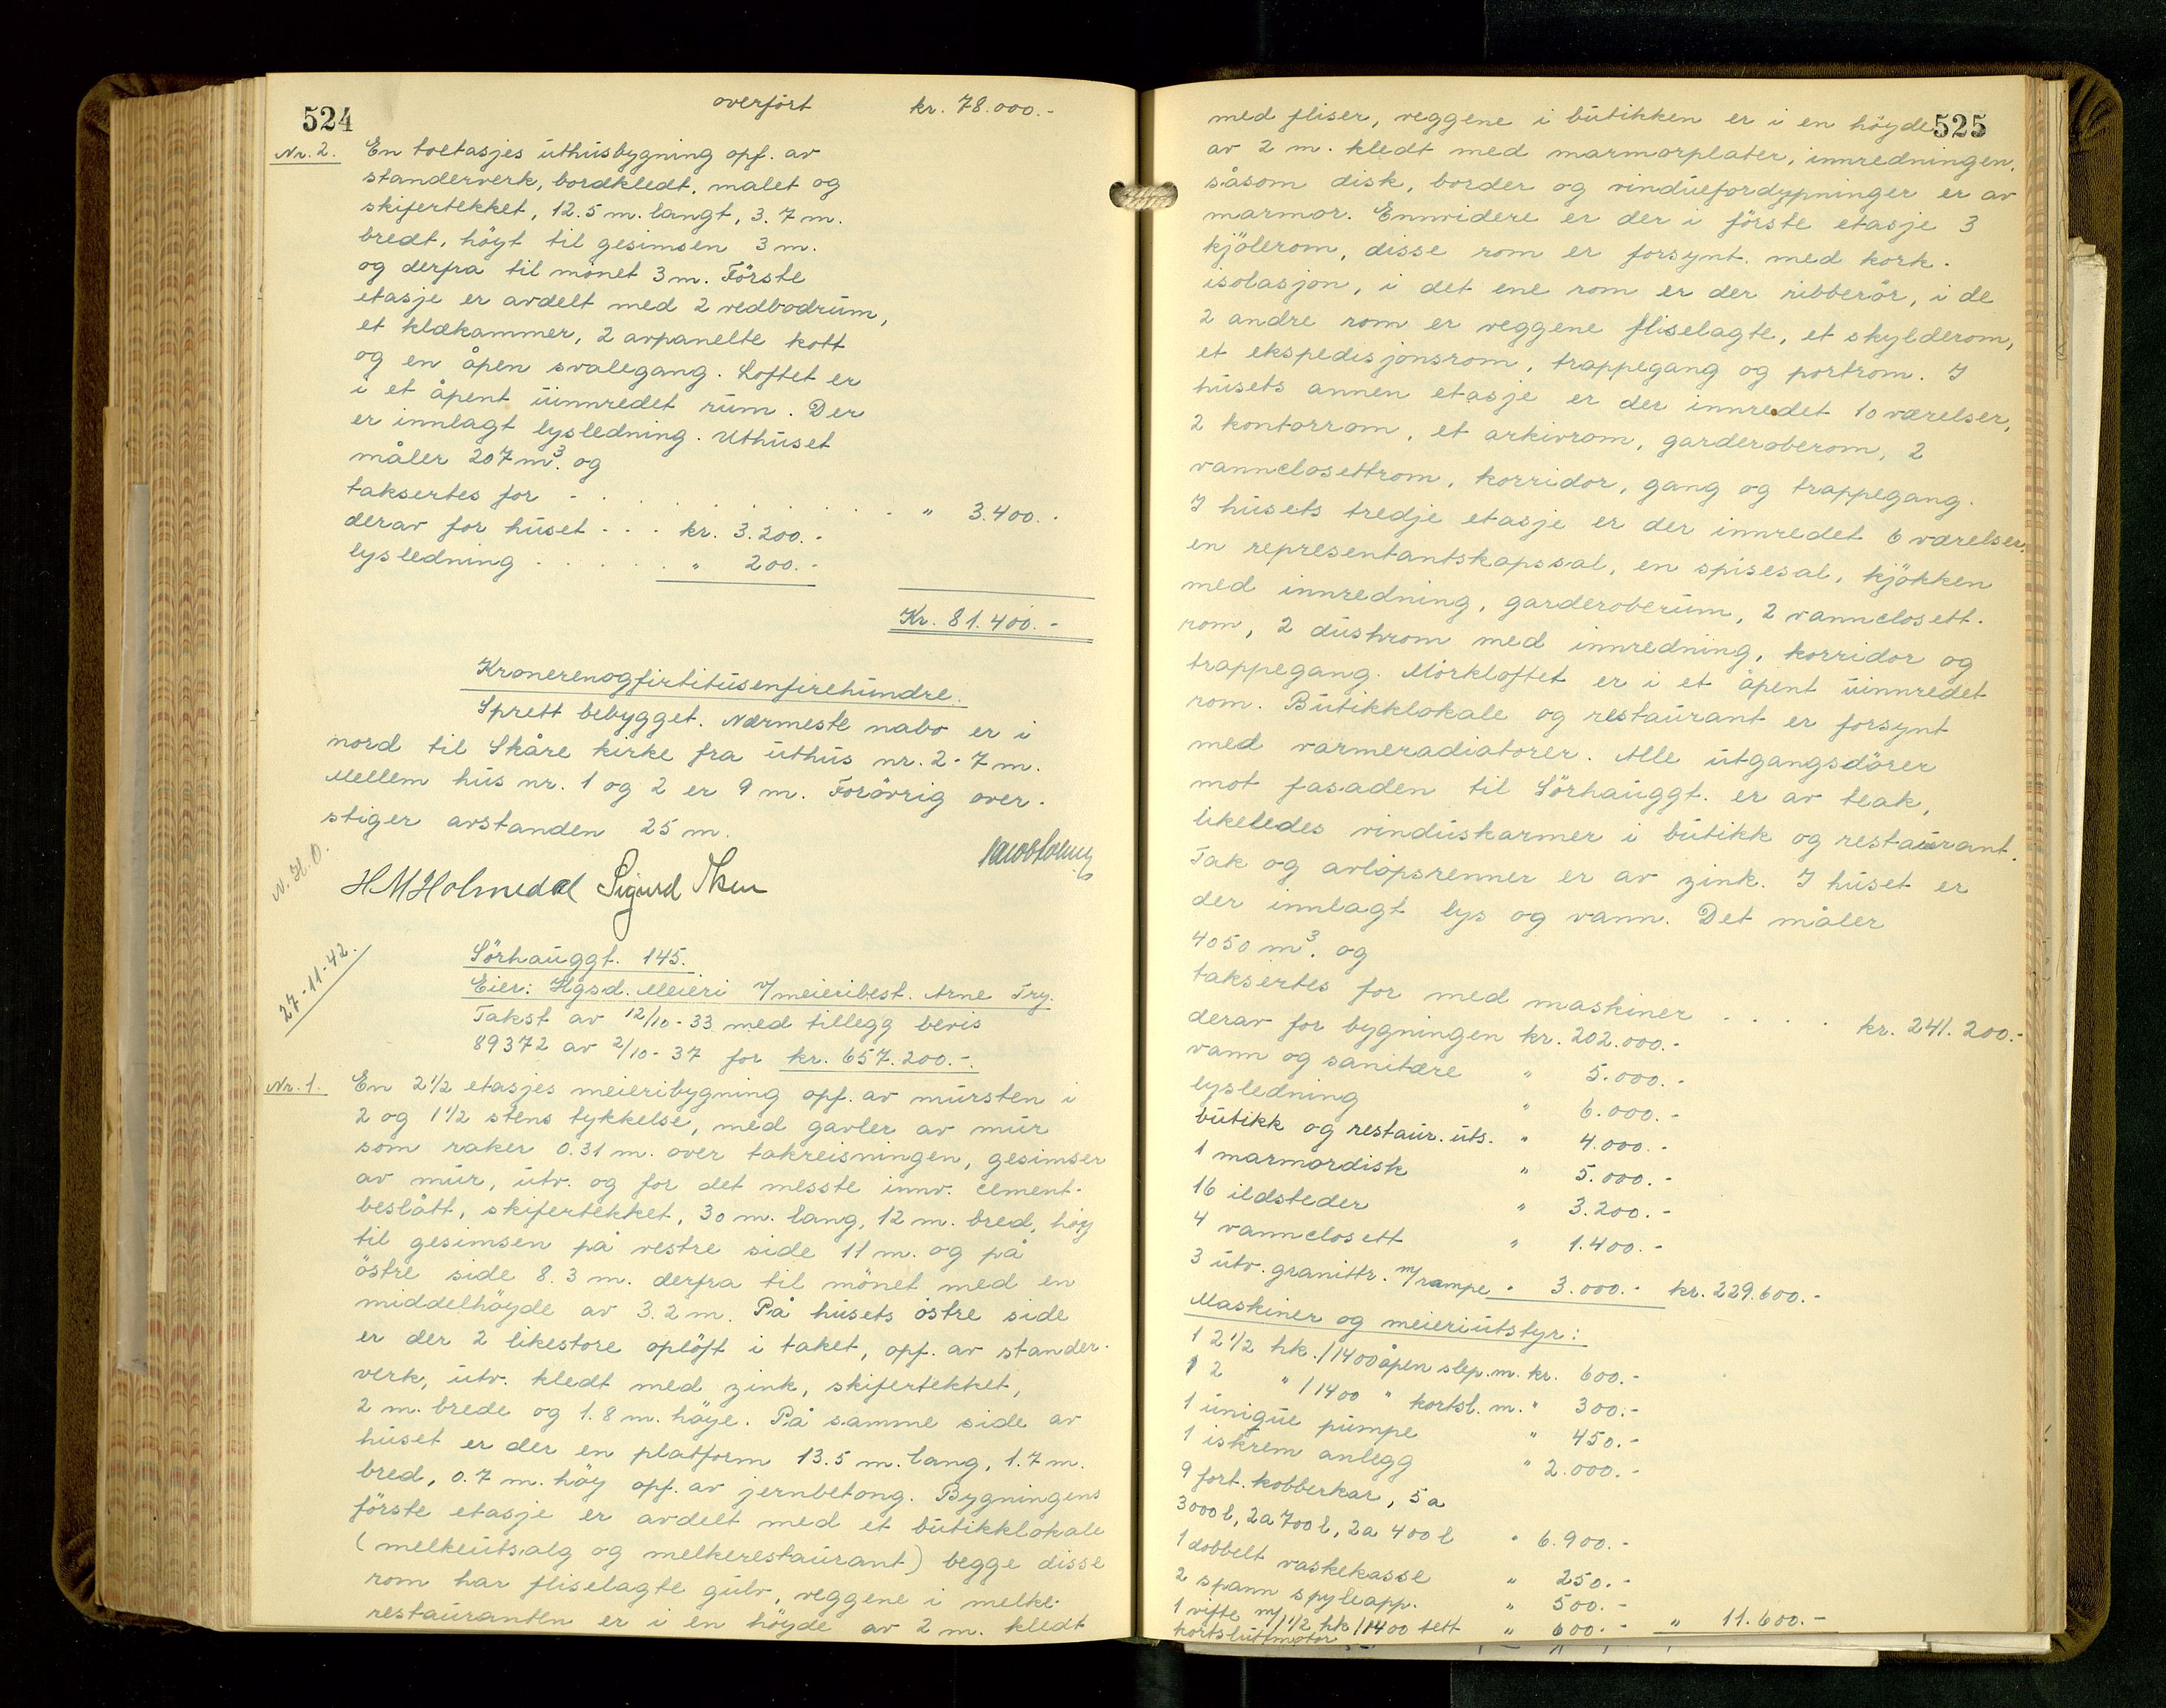 524
overfört kr. 78.000.-
Nr. 2. En toetasjes uthusbygning opf. av
standerverk, bordkledt, malet og
skifertekket, 12.5 m. langt, 3.7 m.
bredt, höyt til gesimsen 3 m.
og derfra til mönet 3 m. Förste
etasje er avdelt med 2 vedbodrum,
et klækammer, 2 avpanelte kott
og en åpen svalegang. Loftet er
i et åpent uinnredet rum. Der
er innlagt lysledning. Uthuset
måler 207 m³. og
taksertes for - . . . . . . . . . " 3.400.-
derav for huset - - . kr. 3.200.-
lysledning . . . . . . " 200.-
Kr. 81.400.-
Kronerenogfirtitusenfirehundre.
Sprett bebygget. Nærmeste nabo er i
nord til Skåre kirke fra uthus nr. 2 - 7 m.
Mellem hus nr. 1 og 2 er 9 m. Forövrig over-
stiger avstanden 25 m.
N. H. O.
H M Holmedal Sigurd
27-11-42.
Sörhauggt. 145.
Eier: Hgsd. Meieri v/ meieribest. Arne Try.
Takst av 12/10-33 med tillegg bevis
89372 av 2/10-37 for kr. 657.200.-
Nr. 1. En 2 1/2 etasjes meieribygning opf. av mursten i
2 og 1 1/2 stens tykkelse, med gavler av mur
som raker 0.31 m. over takreisningen, gesimser
av mur, utv. og for det messte innv. cement-
beslått, skifertekket, 30 m. lang, 12 m. bred, höy
til gesimsen på vestre side 11 m. og på
östre side 8.3 m. derfra til mönet med en
middelhöyde av 3.2 m. På husets östre side
er der 2 likestore oplöft i taket, opf. av stander-
verk, utv. kledt med zink, skifertekket,
2 m. brede og 1.8 m. höye. På samme side av
huset er der en platform 13.5 m. lang, 1.7 m.
bred, 0.7 m. höy opf. av jernbetong. Bygningens
förste etasje er avdelt med et butikklokale
(melkeutsalg og melkerestaurant) begge disse
rom har fliselagte gulv, veggene i melke-
restauranten er i en höyde av 2 m. kledt
525
med fliser, veggene i butikken er i en höyde
av 2 m. kledt med marmorplater, innredningen,
såsom disk, border og vinduefordypninger er av
marmor. Ennvidere er der i förste etasje 3
kjölerom, disse rom er forsynt. med kork-
isolasjon, i det ene rom er der ribberör, i de
2 andre rom er veggene fliselagte, et skylderom,
et ekspedisjonsrom, trappegang og portrom. I
husets annen etasje er der innredet 10 værelser,
2 kontorrom, et arkivrom, garderoberom, 2
vannclosettrom, korridor, gang og trappegang.
I husets tredje etasje er der innredet 6 værelser,
en representantskapssal, en spisesal, kjökken
med innredning, garderoberum, 2 vannclosett-
rom, 2 dushrom med innredning, korridor og
trappegang. Mörkloftet er i et åpent uinnredet
rom. Butikklokale og restaurant er forsynt
med varmeradiatorer. Alle utgangsdörer
mot fasaden til Sörhauggt. er av teak,
likeledes vinduskarmer i butikk og restaurant.
Tak og avlöpsrenner er av zink. I huset er
der innlagt lys og vann. Det måler
4050 m³. og
taksertes for med maskiner . . . . kr. 241.200.-
derav for bygningen kr. 202.000.-
vann og sanitære " 5.000.-
lysledning " 6.000.-
butikk og restaur. uts. " 4.000.-
1 marmordisk " 5.000.-
16 ildsteder " 3.200.-
4 vannclosett " 1.400.-
3 utv. granittr. m/rampe " 3.000.- kr. 229.600.-
Maskiner og meieriutstyr:
1 2 1/2 hk. / 1400 åpen slep. m. kr. 600.-
1 2 " / 1400 " kortsl. m. " 300.-
1 unique pumpe " 450.-
1 iskrem anlegg " 2.000.-
9 fort. kobberkar, 5 a
3000 l, 2 a 700 l, 2 a 400 l " 6.900.-
1 dobbelt vaskekasse " 250.-
2 spann spyleapp. " 500.-
1 vifte m/ 1 1/2 hk / 1400 tett " 600.- " 11.600.-
kortsluttmotor